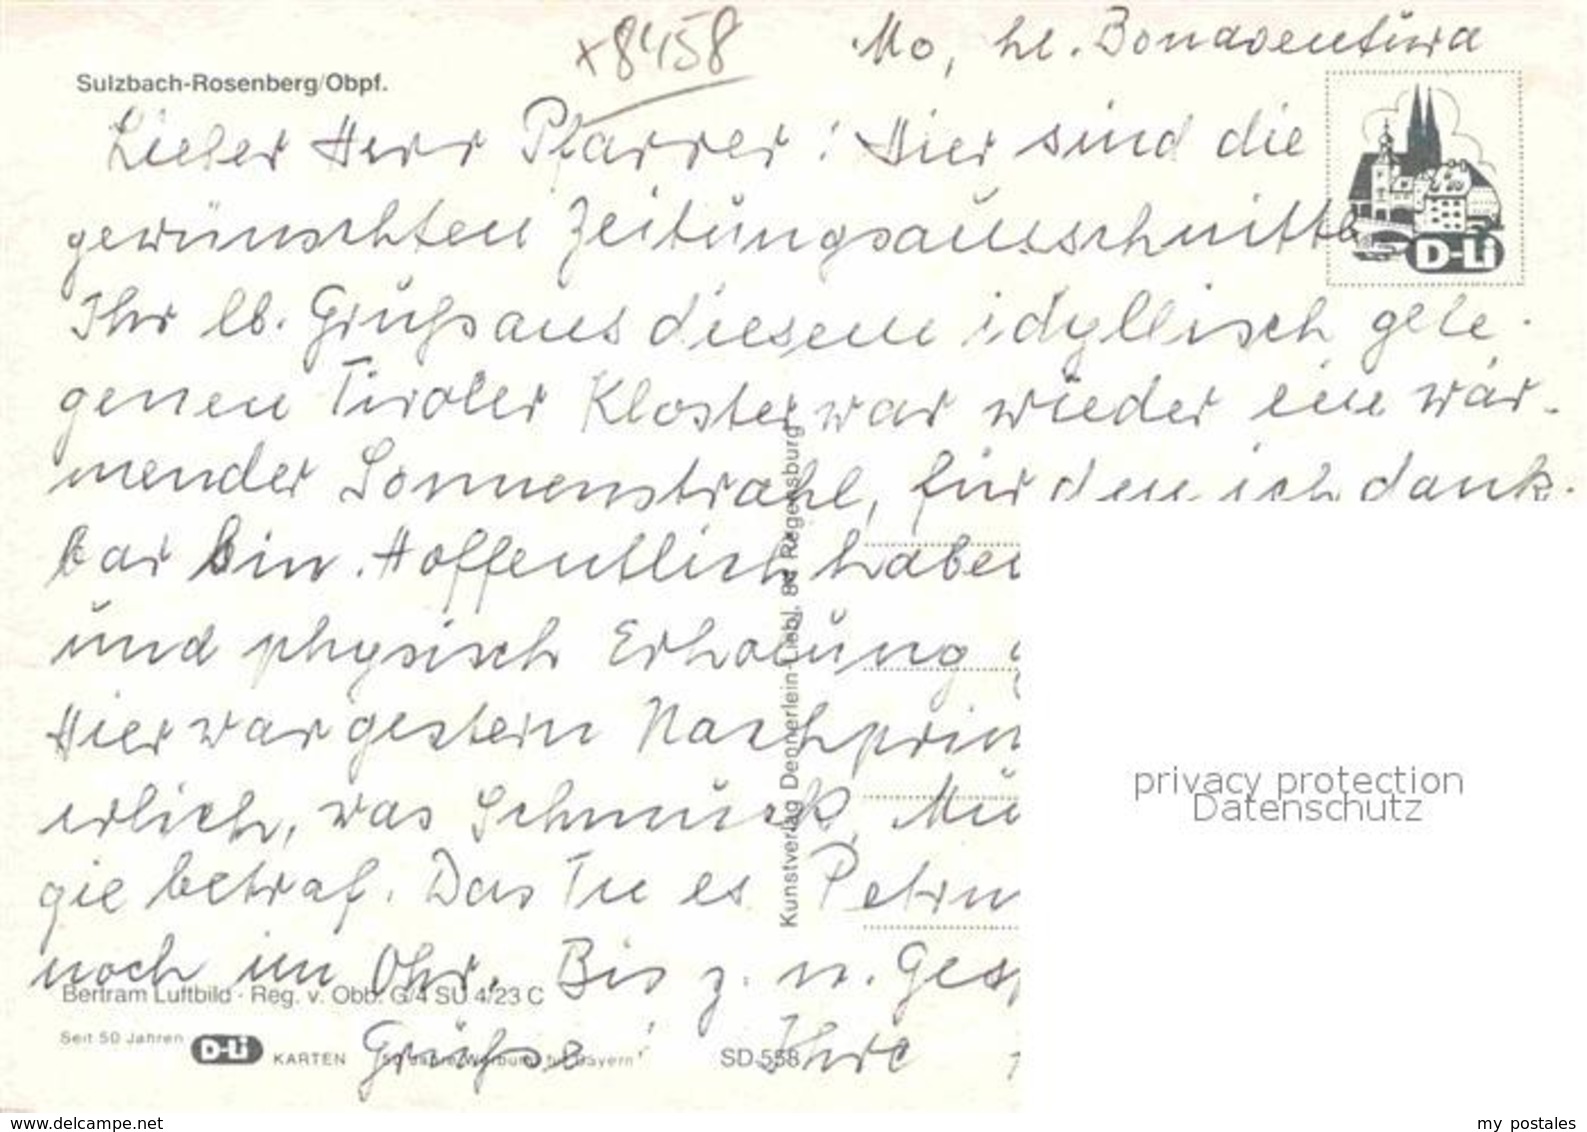 x8458
Mo, hl. Bonaventura
Sulzbach-Rosenberg/Obpf.
Lieber Herr Pfarrer! Hier sind die
gewünschten Zeitungsausschnitte
D-Li
Ihr lb. Gruß aus diesem idyllisch gele-
genen Tiroler Kloster war wieder ein wär-
mender Sonnenstrahl, für den ich dank-
bar bin. Hoffentlich haben
und physisch Erholung
Hier war gestern Nachprim
erlich, was Schmuck,
gie betraf. Das Tu es Petru
noch im Ohr. Bis z. n. Ges
Grüße! Ihre
Kunstverlag Dennerlein-Liebl, 84 Regensburg
Bertram Luftbild · Reg. v. Obb. G/4 SU 4/23 C
Seit 50 Jahren D-Li KARTEN "50 Jahre Werbung für Bayern"
SD 558
privacy protection
Datenschutz
www.delcampe.net
my postales